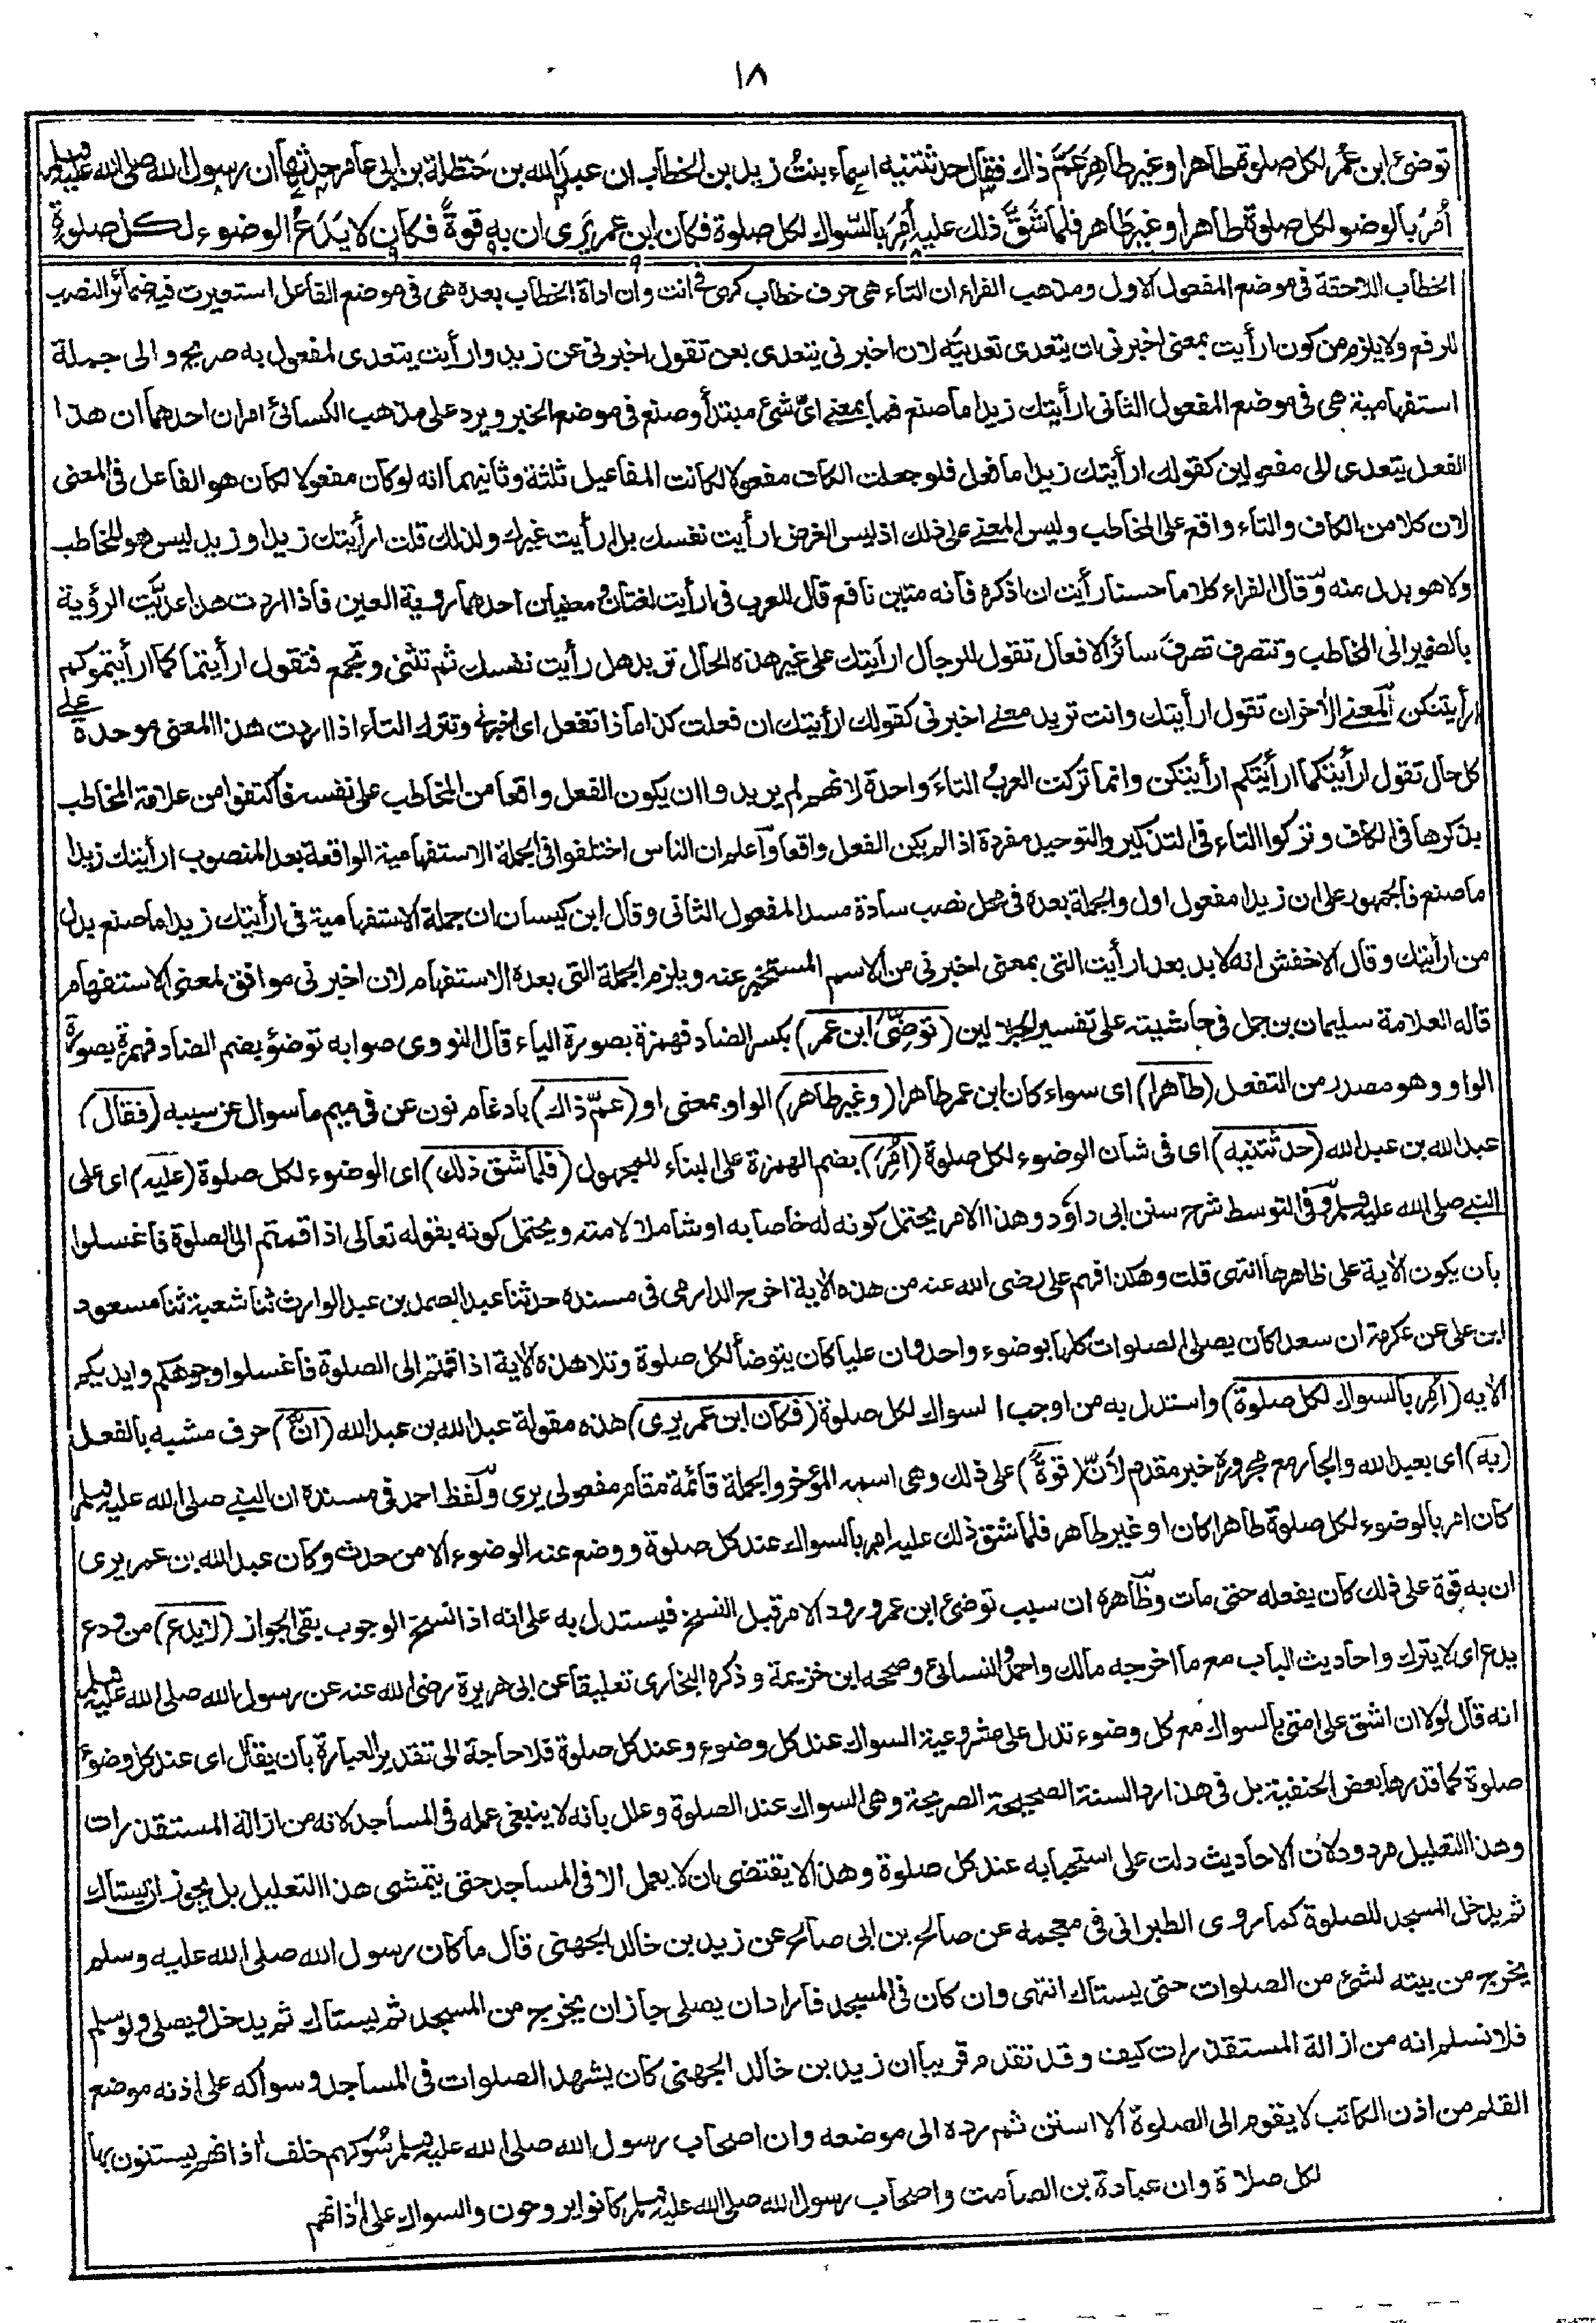 ١٨
توضئ ابن عُمر لكل صلوة طاهرا وغير طاهِر عَمَّ ذاك فقال حدثتنيه اسماء بنتُ زيد بن الخطاب ان عبد الله بن حنظلة بن ابي عامر حدثها ان رسول الله صلى الله عليه وسلم
أُمِرَ بالوضوء لكل صلوة طاهرا وغير طاهر فلما شَقَّ ذلك عليه أُمِرَ بالسّواك لكل صلوة فكان ابن عمر يَرى ان به قوةً فكان لا يَدَعُ الوضوء لكل صلوةٍ
الخطاب اللاحقة في موضع المفعول الاول ومذهب الفراء ان التاء هي حرف خطاب كهي في انت وان اداة الخطاب بعده هي في موضع الفاعل استعيرت فيه ضمائر النصب
للرفع ولا يلزم من كون ارأيت بمعنى اخبرني ان يتعدى تعديته لان اخبرني يتعدى بعن تقول اخبرني عن زيد وارأيت يتعدى لمفعول به صريح والى جملة
استفهامية هي في موضع المفعول الثاني ارأيتك زيدا ما صنع فما بمعنى اىّ شئ مبتدأ وصنع في موضع الخبر ويرد على مذهب الكسائى امران احدهما ان هذا
الفعل يتعدى الى مفعولين كقولك ارأيتك زيدا ما فعل فلو جعلت الكاف مفعولا لكانت المفاعيل ثلثة وثانيهما انه لو كان مفعولا لكان هو الفاعل في المعنى
لان كلا من الكاف والتاء واقع على المخاطب وليس المعنى على ذلك اذ ليس الغرض ارأيت نفسك بل ارأيت غيرك ولذلك قلت ارأيتك زيدا وزيد ليس هو المخاطب
ولا هو بدل منه وقال الفراء كلاما حسنا رأيت ان اذكره فانه متين نافع قال للعرب في ارأيت لغتان ومعنيان احدهما رؤية العين فاذا اردت هذا عدّيت الرؤية
بالضمير الى المخاطب وتتصرف تصرفَ سائر الافعال تقول للرجال ارأيتك على غير هذه الحال تريد هل رأيت نفسك ثم تثنى وتجمع فتقول ارأيتما كما ارأيتموكم
ارأيتنكن المعنى الاٰخر ان تقول ارأيتك وانت تريد معنى اخبرني كقولك ارأيتك ان فعلت كذا ماذا تفعل اى اخبرني وتترك التاء اذا اردت هذا المعنى موحدة على
كل حال تقول ارأيتكما ارأيتكم ارأيتكن وانما تركت العربُ التاءَ واحدة لانهم لم يريدوا ان يكون الفعل واقعا من المخاطب على نفسه فاكتفوا من علامة المخاطب
بذكرها في الكاف وتركوا التاء في التذكير والتوحيد مفردة اذ لم يكن الفعل واقعا واعلم ان الناس اختلفوا في الجملة الاستفهامية الواقعة بعد المنصوب ارأيتك زيدا
ما صنع فالجمهور على ان زيدا مفعول اول والجملة بعده في محل نصب سادة مسد المفعول الثاني وقال ابن كيسان ان جملة الاستفهامية في ارأيتك زيدا ما صنع بدل
من ارأيتك وقال الاخفش انه لا بد بعد ارأيت التي بمعنى اخبرني من الاسم المستخبر عنه ويلزم الجملة التي بعده الاستفهام لان اخبرني موافق لمعنى الاستفهام
قاله العلامة سليمان بن جمل في حاشيته على تفسير الجلالين (توضئ ابن عمر) بكسر الضاد فهمزة بصورة الياء قال النووى صوابه توضؤ بضم الضاد فهمزة بصورة
الواو وهو مصدر من التفعل (طاهرا) اى سواء كان ابن عمر طاهرا (وغير طاهر) الواو بمعنى او (عمّ ذاك) بادغام نون عن في ميم ما سوال عن سببه (فقال)
عبد الله بن عبد الله (حدثتنيه) اى في شأن الوضوء لكل صلوة (اُمِرَ) بضم الهمزة على البناء للمجهول (فلما شق ذلك) اى الوضوء لكل صلوة (عليه) اى على
النبي صلى الله عليه وسلم وفي التوسط شرح سنن ابي داود وهذا الامر يحتمل كونه له خاصا به او شاملا لامته ويحتمل كونه بقوله تعالى اذا قمتم الى الصلوة فاغسلوا
بان يكون الاية على ظاهرها انتهى قلت وهكذا فهم على رضى الله عنه من هذه الاٰية اخرج الدارمى في مسنده حدثنا عبد الصمد بن عبد الوارث ثنا شعبة ثنا مسعود
ابن على عن عكرمة ان سعدا كان يصلى الصلوات كلها بوضوء واحد وان عليا كان يتوضأ لكل صلوة وتلا هذه الاية اذا قمتم الى الصلوة فاغسلوا وجوهكم وايديكم
الاٰيه (اُمِر بالسواك لكل صلوة) واستدل به من اوجب السواك لكل صلوة (فكان ابن عمر يرى) هذه مقولة عبد الله بن عبد الله (انّ) حرف مشبه بالفعل
(به) اى بعبد الله والجار مع مجروره خبر مقدم لان (قوةً) على ذلك وهى اسمه المؤخر والجملة قائمة مقام مفعولى يرى ولفظ احمد في مسنده ان النبي صلى الله عليه وسلم
كان امر بالوضوء لكل صلوة طاهرا كان او غير طاهر فلما شق ذلك عليه امر بالسواك عند كل صلوة ووضع عنه الوضوء الا من حدث وكان عبد الله بن عمر يرى
ان به قوة على ذلك كان يفعله حتى مات وظاهره ان سبب توضئ ابن عمر ورود الامر قبل النسخ فيستدل به على انه اذا نسخ الوجوب بقى الجواز (لا يدع) من ودع
يدع اى لا يترك واحاديث الباب مع ما اخرجه مالك واحمد والنسائى وصححه ابن خزيمة وذكره البخارى تعليقا عن ابي هريرة رضى الله عنه عن رسول الله صلى الله عليه وسلم
انه قال لولا ان اشق على امتى بالسواك مع كل وضوء تدل على مشروعية السواك عند كل وضوء وعند كل صلوة فلا حاجة الى تقدير العبارة بان يقال اى عند كل وضوء
صلوة كما قدرها بعض الحنفية بل في هذا رد السنة الصحيحة الصريحة وهى السواك عند الصلوة وعلل بانه لا ينبغى عمله في المساجد لانه من ازالة المستقذرات
وهذا التعليل مردود لان الاحاديث دلت على استحبابه عند كل صلوة وهذا لا يقتضى ان لا يعمل الا في المساجد حتى يتمشى هذا التعليل بل يجوز ان يستاك
ثم يدخل المسجد للصلوة كما روى الطبراني في معجمه عن صالح بن ابي صالح عن زيد بن خالد الجهنى قال ما كان رسول الله صلى الله عليه وسلم
يخرج من بيته لشئ من الصلوات حتى يستاك انتهى وان كان في المسجد فاراد ان يصلى جاز ان يخرج من المسجد ثم يستاك ثم يدخل ويصلى ولو سلم
فلا نسلم انه من ازالة المستقذرات كيف وقد تقدم قريبا ان زيد بن خالد الجهنى كان يشهد الصلوات في المساجد وسواكه على اذنه موضع
القلم من اذن الكاتب لا يقوم الى الصلوة الا استن ثم رده الى موضعه وان اصحاب رسول الله صلى الله عليه وسلم سُوكهم خلف اٰذانهم يستنون بها
لكل صلاة وان عبادة بن الصامت واصحاب رسول الله صلى الله عليه وسلم كانوا يروحون والسواك على اٰذانهم